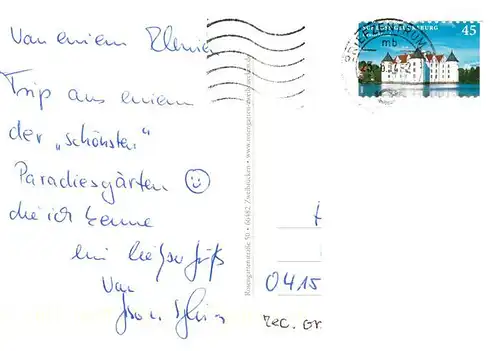 Von einem kleinen
Trip aus einem
der „schönsten“
Paradiesgärten ☺
die ich kenne
ein lieber Gruß
von
Rosengartenstraße 50 • 66482 Zweibrücken • www.rosengarten-zweibruecken.de
GLÜCKSBURG
45
BRIEFZENTRUM
mb
0415
rec. Gr